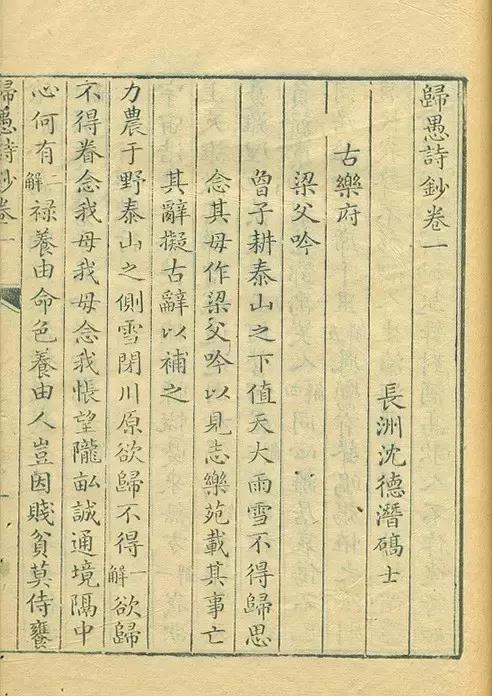 歸愚詩鈔卷一
長洲沈德潛碻士
古樂府
梁父吟
曾子耕泰山之下值天大雨雪不得歸思
念其母作梁父吟以見志樂苑載其事亡
其辭擬古辭以補之
力農于野泰山之側雪閉川原欲歸不得一解欲歸
不得眷念我母我母念我悵望隴畝誠通境隔中
心何有二解祿養由命色養由人豈因賤貧莫侍饔
歸愚詩鈔卷一